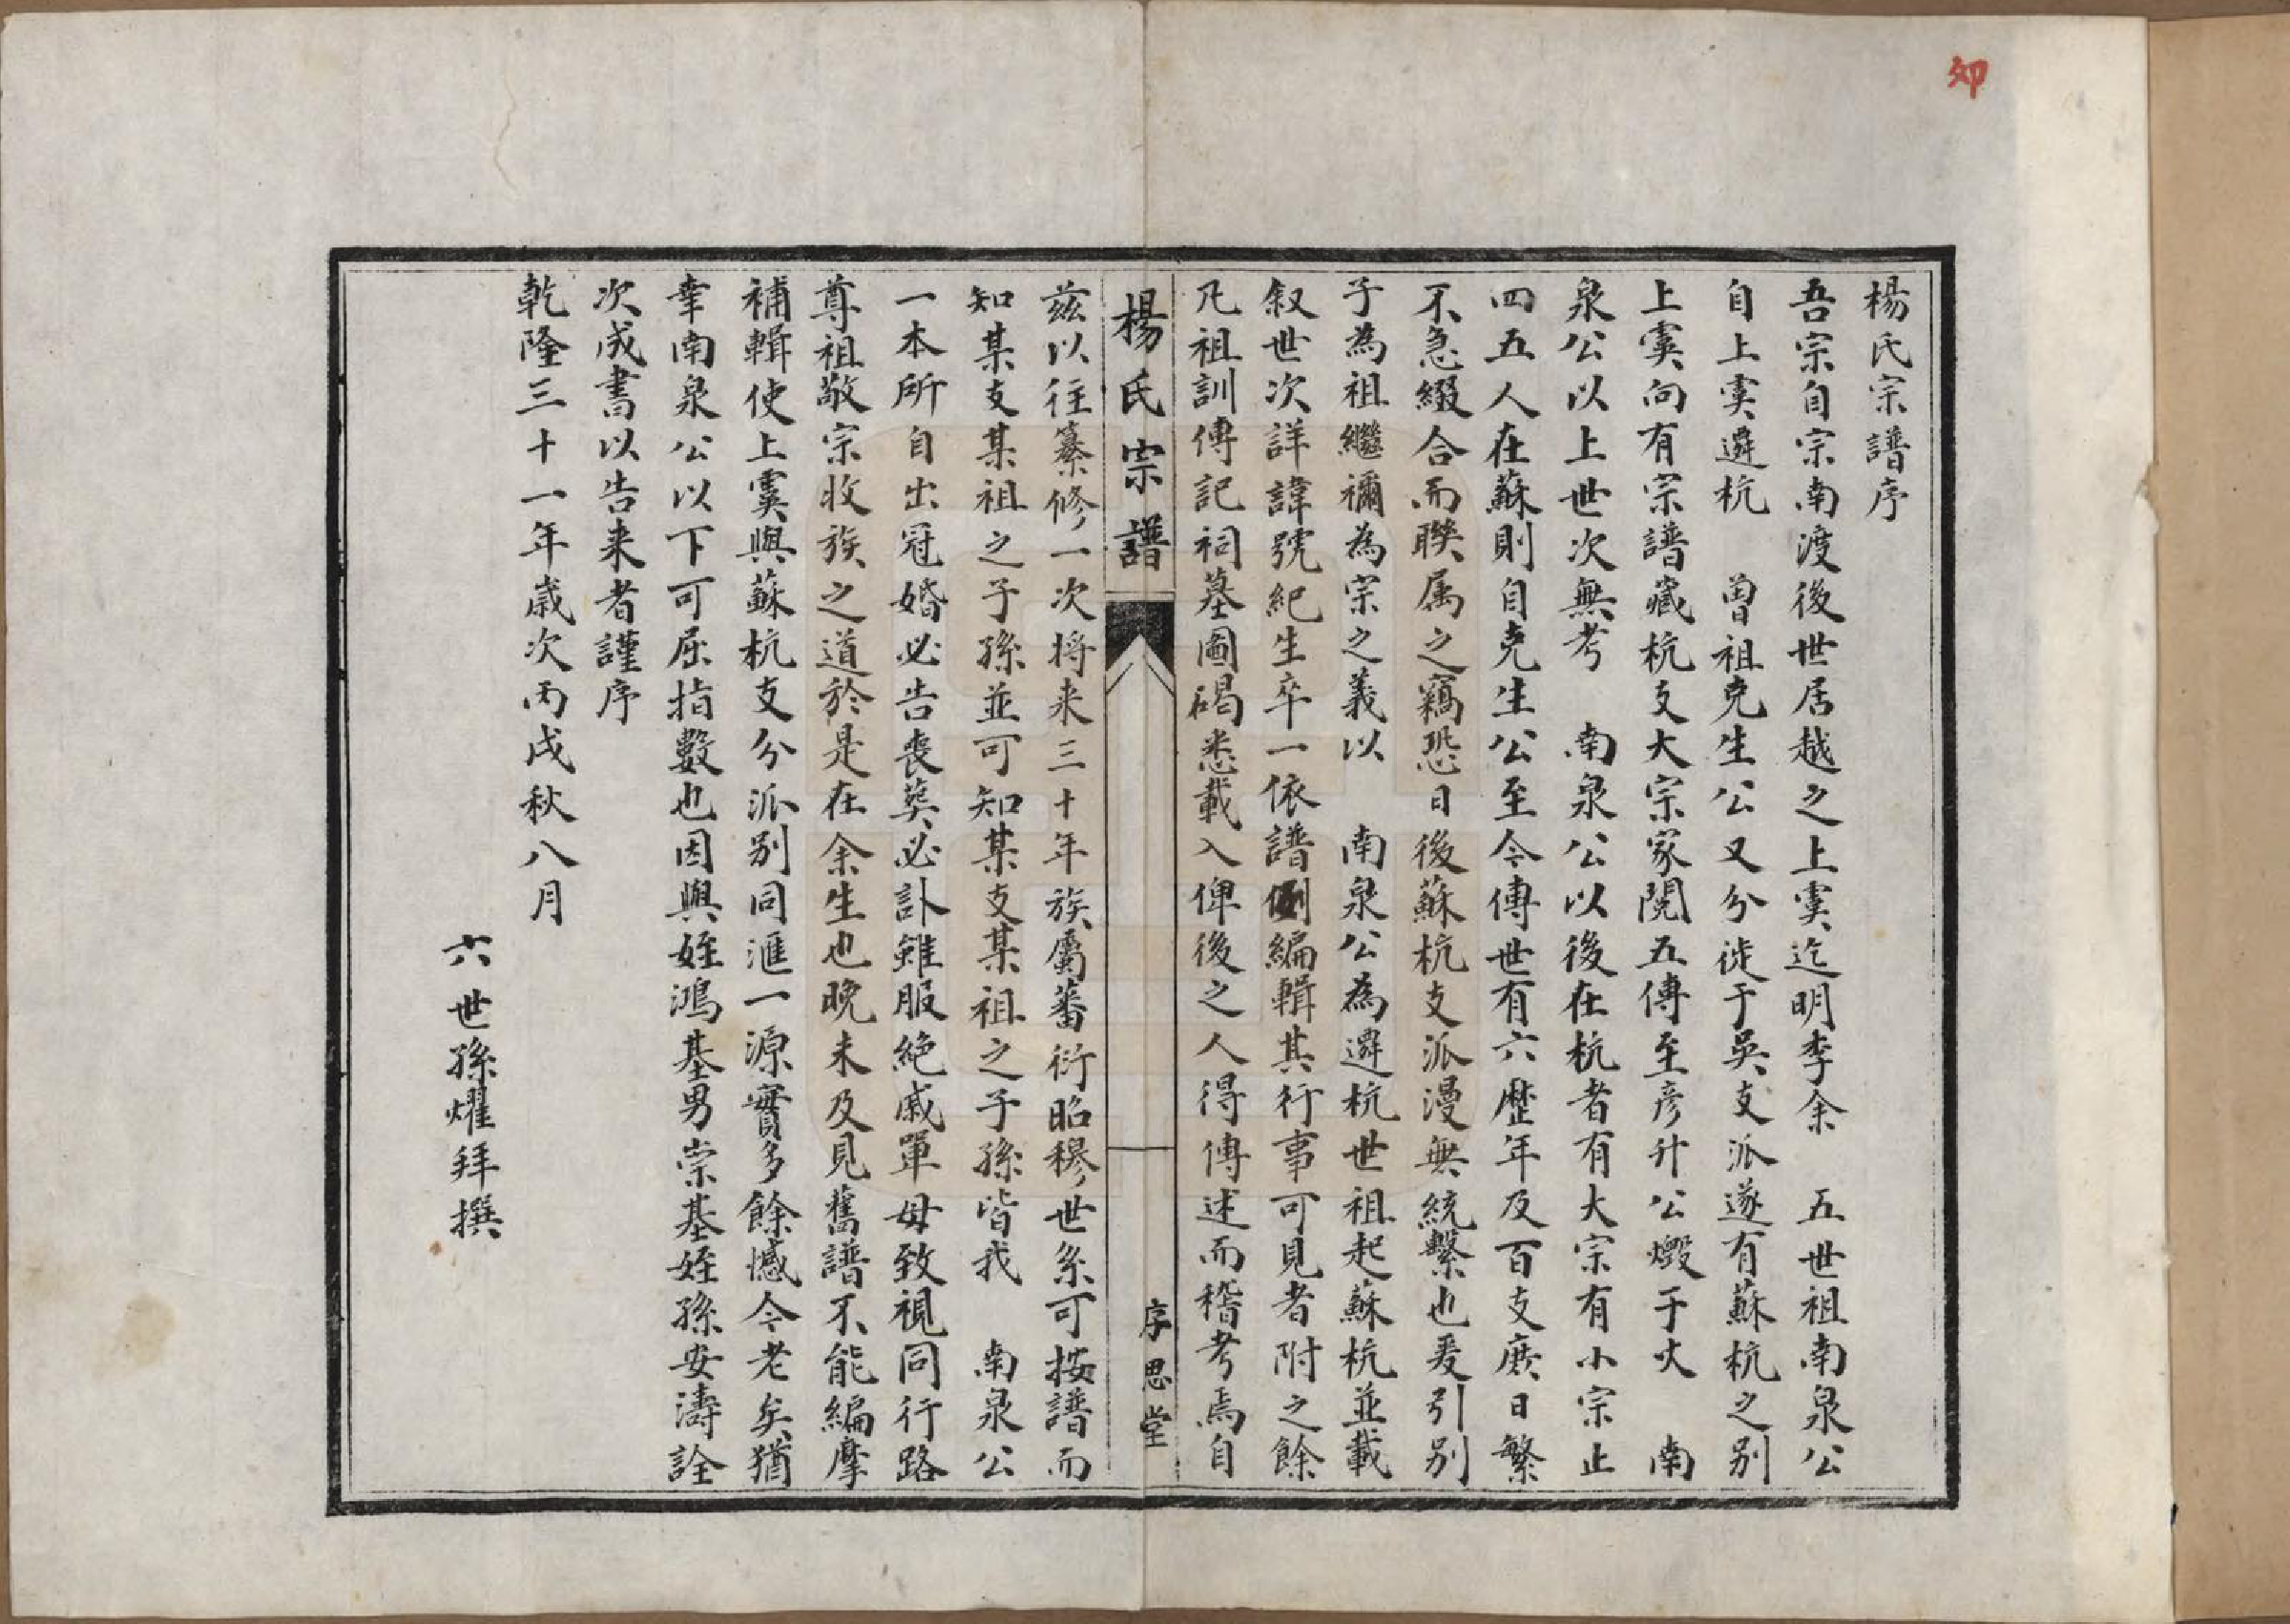 楊氏宗譜序
吾宗自宗南渡後世居越之上虞迄明季余　五世祖南泉公
自上虞遷杭　曾祖克生公又分徙于吳支派遂有蘇杭之别
上虞向有宗譜藏杭支大宗家閱五傳至彦升公燬于火　南
泉公以上世次無考　南泉公以後在杭者有大宗有小宗止
四五人在蘇則自克生公至今傳世有六歷年及百支庶日繁
不急綴合而聨属之竊恐日後蘇杭支派漫無統繫也爰引别
子為祖繼禰為宗之義以　南泉公為遷杭世祖起蘇杭並載
叙世次詳諱號紀生卒一依譜例編輯其行事可見者附之餘
凡祖訓傳記祠墓圖碣悉載入俾後之人得傳述而稽考焉自
楊氏宗譜
序思堂
茲以往纂修一次将来三十年族屬蕃衍昭穆世系可按譜而
知某支某祖之子孫並可知某支某祖之子孫皆我　南泉公
一本所自出冠婚必告喪葬必訃雖服絶戚單毋致視同行路
尊祖敬宗收族之道於是在余生也晚未及見舊譜不能編摩
補輯使上虞與蘇杭支分派别同滙一源實多餘憾今老矣猶
幸南泉公以下可屈指數也因與姪鴻基男崇基姪孫安濤詮
次成書以告来者謹序
乾隆三十一年歲次丙戌秋八月
六世孫燿拜撰